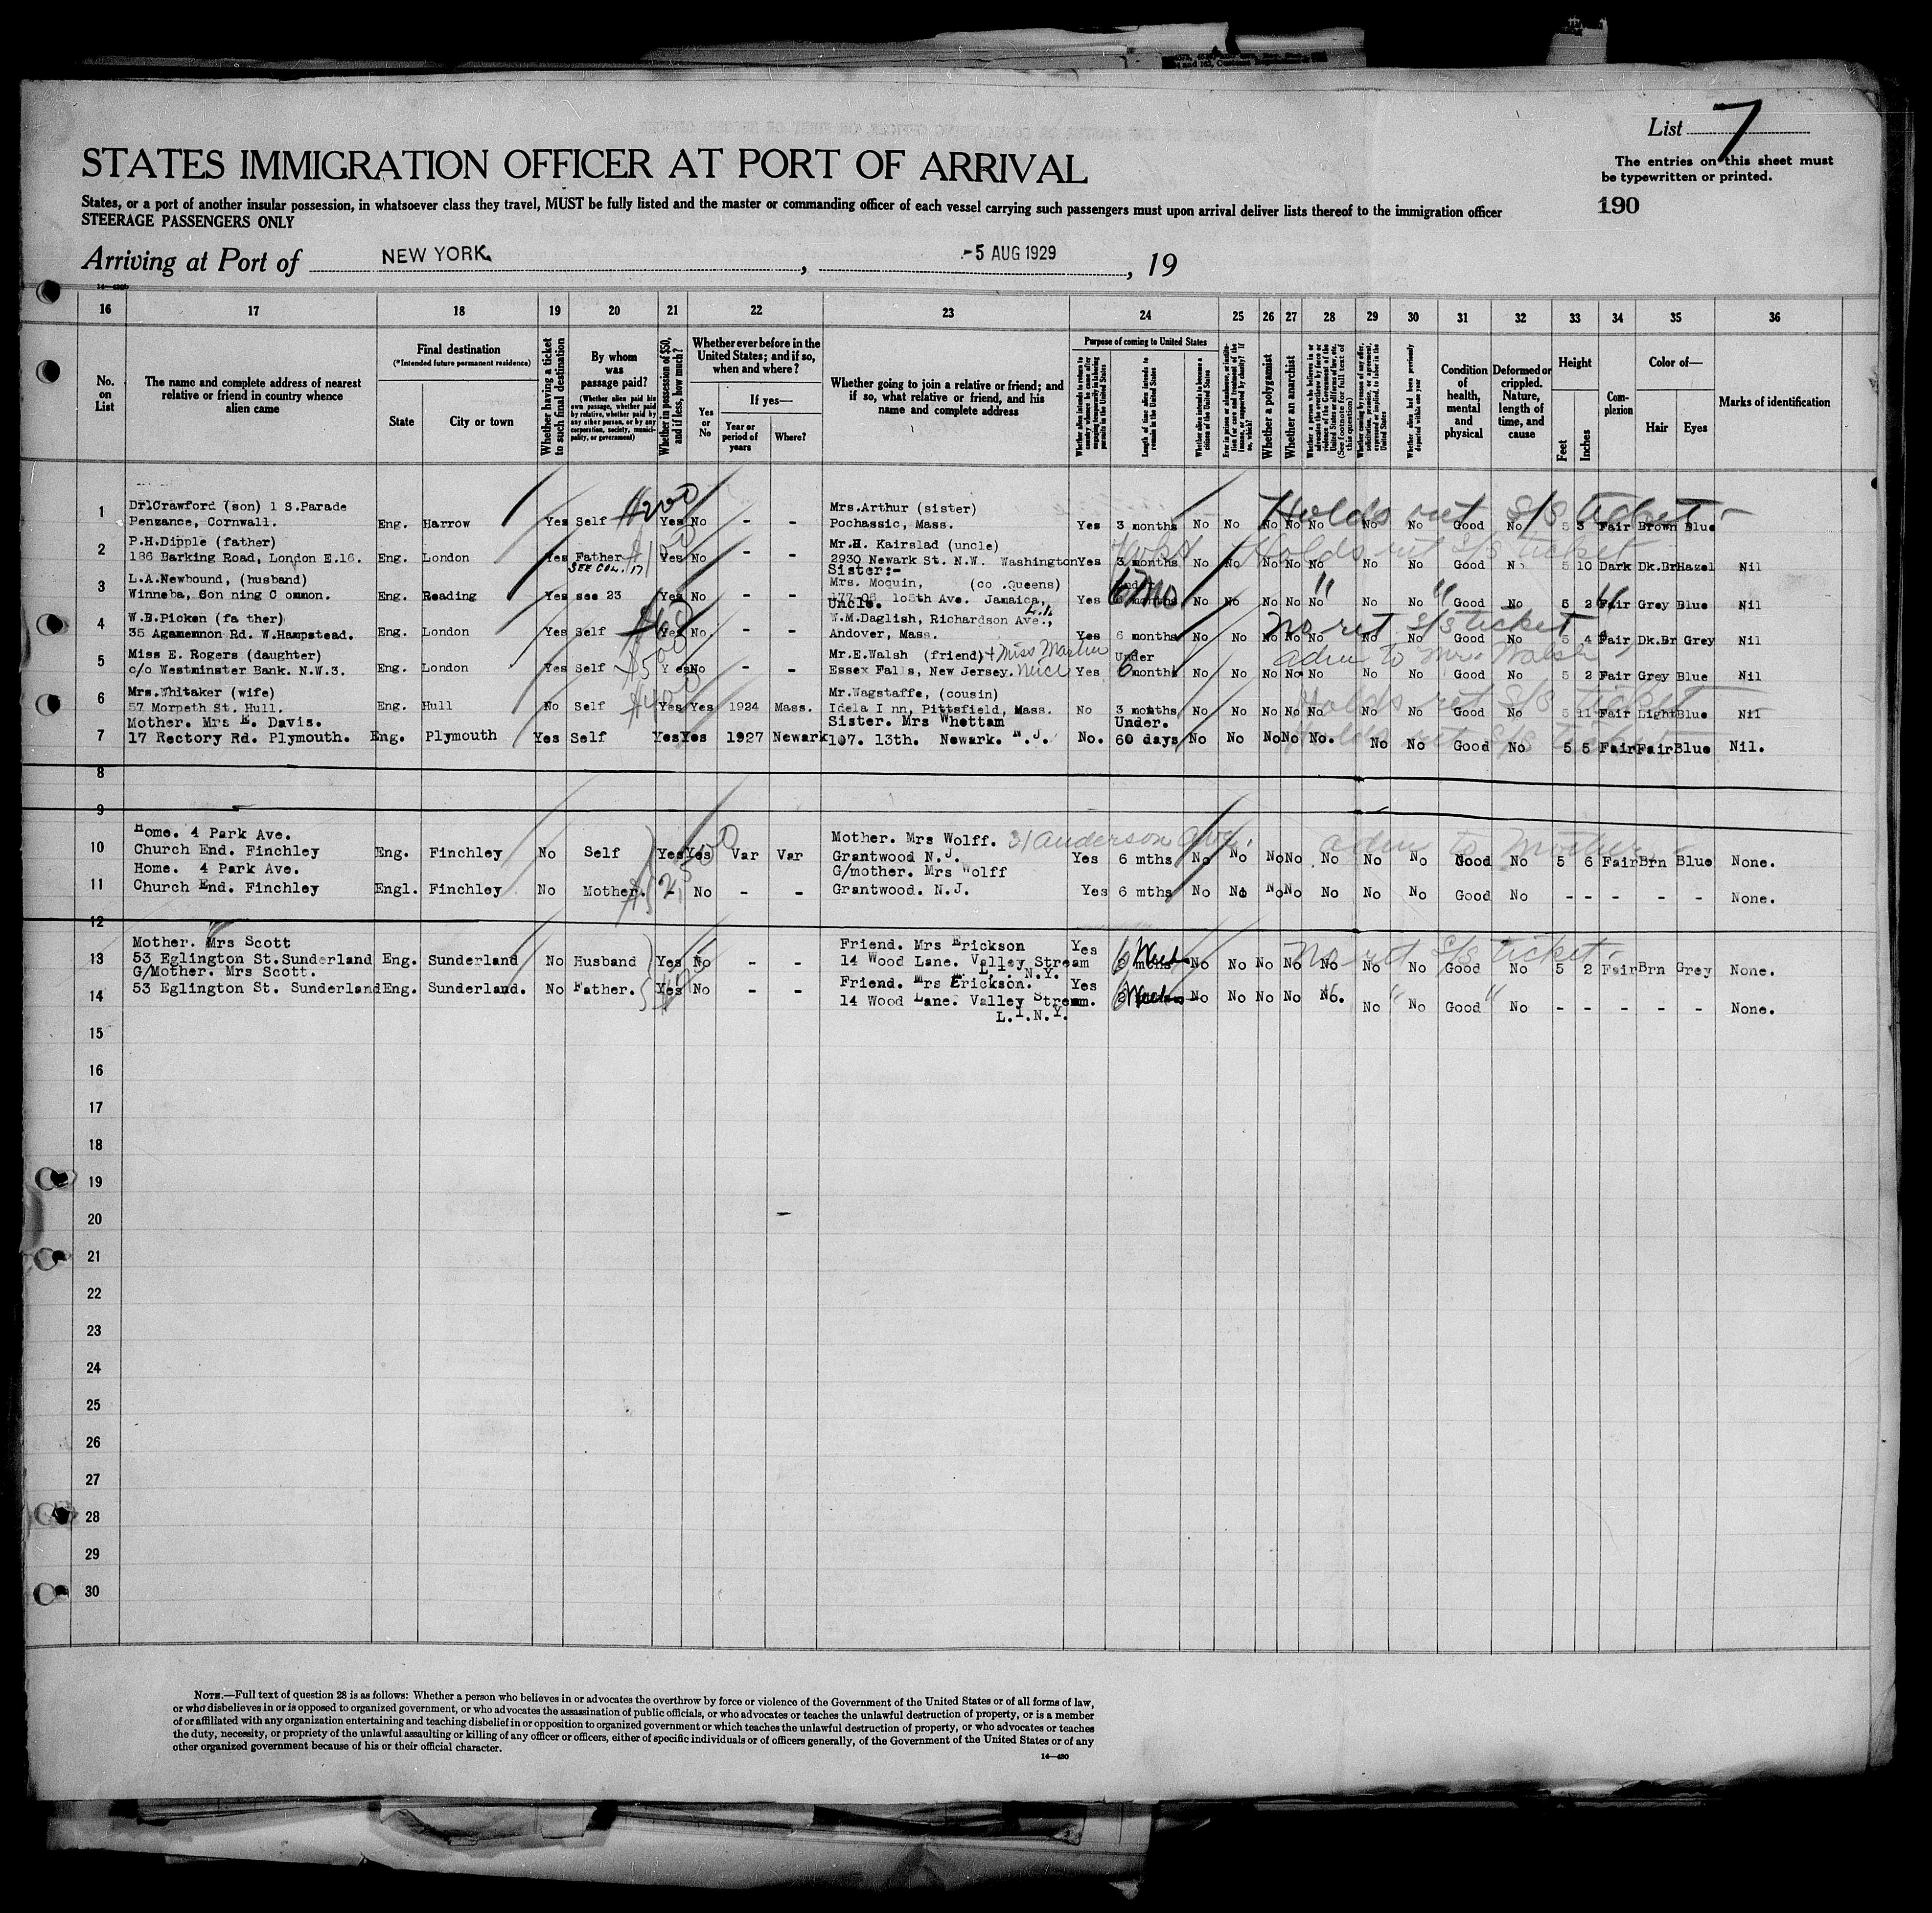 List 7
The entries on this sheet must
be typewritten or printed.
190
STATES IMMIGRATION OFFICER AT PORT OF ARRIVAL
States, or a port of another insular possession, in whatsoever class they travel, MUST be fully listed and the master or commanding officer of each vessel carrying such passengers must upon arrival deliver lists thereof to the immigration officer
STEERAGE PASSENGERS ONLY
Arriving at Port of NEW YORK, -5 AUG 1929, 19
16 17 18 19 20 21 22 23 24 25 26 27 28 29 30 31 32 33 34 35 36
No. on List
The name and complete address of nearest relative or friend in country whence alien came
Final destination
(*Intended future permanent residence)
State
City or town
Whether having a ticket to such final destination
By whom was passage paid?
(Whether alien paid his own passage, whether paid by relative, whether paid by any other person, or by any corporation, society, municipality, or government)
Whether in possession of $50, and if less, how much?
Whether ever before in the United States; and if so, when and where?
Yes or No
If yes—
Year or period of years
Where?
Whether going to join a relative or friend; and if so, what relative or friend, and his name and complete address
Purpose of coming to United States
Length of time alien intends to remain in the United States
Whether alien intends to become a citizen of the United States
Whether a polygamist
Whether an anarchist
(See footnote for full text of this question)
Whether alien had been previously deported within one year
Condition of health, mental and physical
Deformed or crippled. Nature, length of time, and cause
Height
Feet
Inches
Complexion
Color of—
Hair
Eyes
Marks of identification
1 Dr.Crawford (son) 1 S.Parade
Penzance, Cornwall. Eng. Harrow Yes Self $200 Yes No - - Mrs.Arthur (sister)
Pochassic, Mass. Yes 3 months No No No No No No No Good No 5 3 Fair Brown Blue
Holds ret S/S ticket -
2 P.H.Dipple (father)
186 Barking Road, London E.16. Eng. London Yes Father Yes No - - Mr.H. Kairslad (uncle)
2930 Newark St. N.W. Washington Yes 3 months No No No No No No No Good No 5 10 Dark Dk.Br Hazel Nil
SEE COL. 17
Holds ret S/S ticket
3 L.A.Newbound, (husband)
Winneba, Son ning C ommon. Eng. Reading Yes see 23 Yes No - - Sister:-
Mrs. Moquin, (co .Queens)
177-06 105th Ave. Jamaica, L.I. Yes 6 Mo months No No No No No No No Good No 5 2 Fair Grey Blue Nil
4 W.B.Picken (fa ther)
35 Agamemnon Rd. W.Hampstead. Eng. London Yes Self Yes No. - - Uncle.
W.M.Daglish, Richardson Ave.,
Andover, Mass. Yes 6 months No No No No No No No Good No 5 4 Fair Dk.Br Grey Nil
No ret S/S ticket
5 Miss E. Rogers (daughter)
c/o Westminster Bank. N.W.3. Eng. London Yes Self $500 Yes No - - Mr.E.Walsh (friend)
Essex Falls, New Jersey. Yes Under
6 months No No No No No No No Good No 5 2 Fair Grey Blue Nil
adm to Mr. Walsh
6 Mrs.Whitaker (wife)
57 Morpeth St. Hull. Eng. Hull No Self $400 Yes Yes 1924 Mass. Mr.Wagstaffe, (cousin)
Idela I nn, Pittsfield, Mass. No 3 months No No No No No No No Good No 5 11 Fair Light Blue Nil
Holds ret S/S ticket
7 Mother. Mrs E. Davis.
17 Rectory Rd. Plymouth. Eng. Plymouth Yes Self Yes Yes 1927 Newark Sister. Mrs Whettam
107. 13th. Newark. N.J. No. Under.
60 days No No No No No. No No Good No 5 5 Fair Fair Blue Nil.
Holds ret S/S ticket
8
9
10 Home. 4 Park Ave.
Church End. Finchley Eng. Finchley No Self Yes Yes Var Var Mother. Mrs Wolff. 31 Anderson Ave.
Grantwood N.J. Yes 6 mths No No No No No No No Good No 5 6 Fair Brn Blue None.
adm to Mother -
11 Home. 4 Park Ave.
Church End. Finchley Engl. Finchley No Mother. No - - G/mother. Mrs Wolff
Grantwood. N.J. Yes 6 mths No No No No No No No Good No - - - - - None.
12
13 Mother. Mrs Scott
53 Eglington St.Sunderland Eng. Sunderland No Husband Yes No - - Friend. Mrs Erickson
14 Wood Lane. Valley Stream
L.I. N.Y. Yes 6 Weeks No No No No No No No Good No 5 2 Fair Brn Grey None.
No ret S/S ticket -
14 G/Mother. Mrs Scott.
53 Eglington St. Sunderland Eng. Sunderland. No Father. Yes No - - Friend. Mrs Erickson.
14 Wood Lane. Valley Stream.
L.I.N.Y. Yes 6 Weeks No No No No No. No No Good No - - - - - None.
15
16
17
18
19
20
21
22
23
24
25
26
27
28
29
30
NOTE.—Full text of question 28 is as follows: Whether a person who believes in or advocates the overthrow by force or violence of the Government of the United States or of all forms of law,
or who disbelieves in or is opposed to organized government, or who advocates the assassination of public officials, or who advocates or teaches the unlawful destruction of property, or is a member
of or affiliated with any organization entertaining and teaching disbelief in or opposition to organized government or which teaches the unlawful destruction of property, or who advocates or teaches
the duty, necessity, or propriety of the unlawful assaulting or killing of any officer or officers, either of specific individuals or of officers generally, of the Government of the United States or of any
other organized government because of his or their official character.
14—430